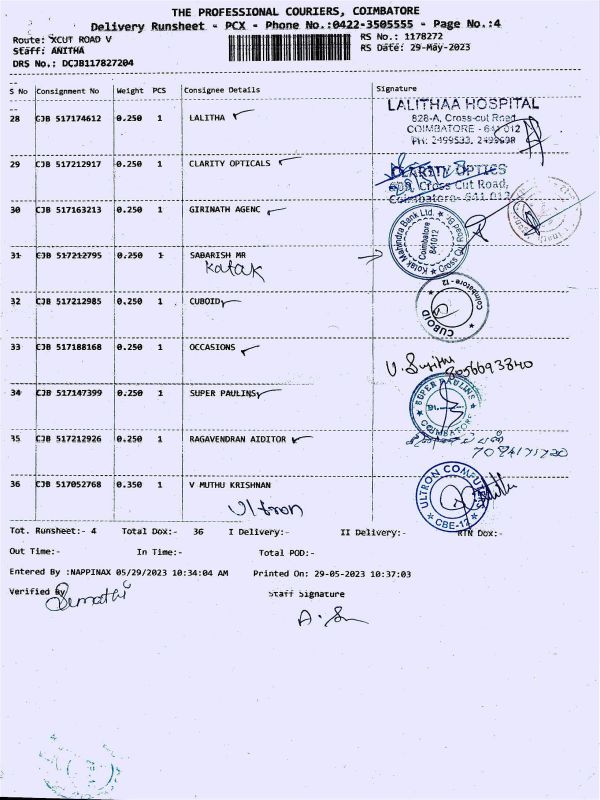 THE PROFESSIONAL COURIERS, COIMBATORE
Delivery Runsheet - PCX - Phone No.:0422-3505555 - Page No.:4
Route: XCUT ROAD V
RS No.: 1178272
Staff: ANITHA
RS Date: 29-May-2023
DRS No.: DCJB117827204
S No Consignment No Weight PCS Consignee Details Signature
28 CJB 517174612 0.250 1 LALITHA
LALITHAA HOSPITAL
828-A, Cross-cut Road
COIMBATORE - 641 012
PH: 2499533, 2499698
29 CJB 517212917 0.250 1 CLARITY OPTICALS
CLARITY OPTICS
Cross Cut Road,
Coimbatore- 641 012
30 CJB 517163213 0.250 1 GIRINATH AGENC
31 CJB 517212795 0.250 1 SABARISH MR
Kotak
Kotak Mahindra Bank Ltd. Cross Cut Road Br.
Coimbatore
641012
32 CJB 517212985 0.250 1 CUBOID
CUBOID Coimbatore - 12
33 CJB 517188168 0.250 1 OCCASIONS
8056693840
34 CJB 517147399 0.250 1 SUPER PAULINS
SUPER PAULINS
COIMBATORE
35 CJB 517212926 0.250 1 RAGAVENDRAN AIDITOR
36 CJB 517052768 0.350 1 V MUTHU KRISHNAN
Ultron
ULTRON COMPUT
CBE-12
Tot. Runsheet:- 4 Total Dox:- 36 I Delivery:- II Delivery:- RTN Dox:-
Out Time:- In Time:- Total POD:-
Entered By :NAPPINAX 05/29/2023 10:34:04 AM Printed On: 29-05-2023 10:37:03
Verified By Staff Signature